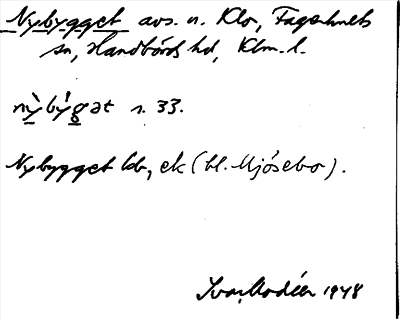 Nybygget avs. u. Klo, Fagerhults
sn, Handbörds hd, Klm. l.
nỳbýgət s. 33.
Nybygget lb, ek (bl. Mjösebo).
Ivar Modéer 1948